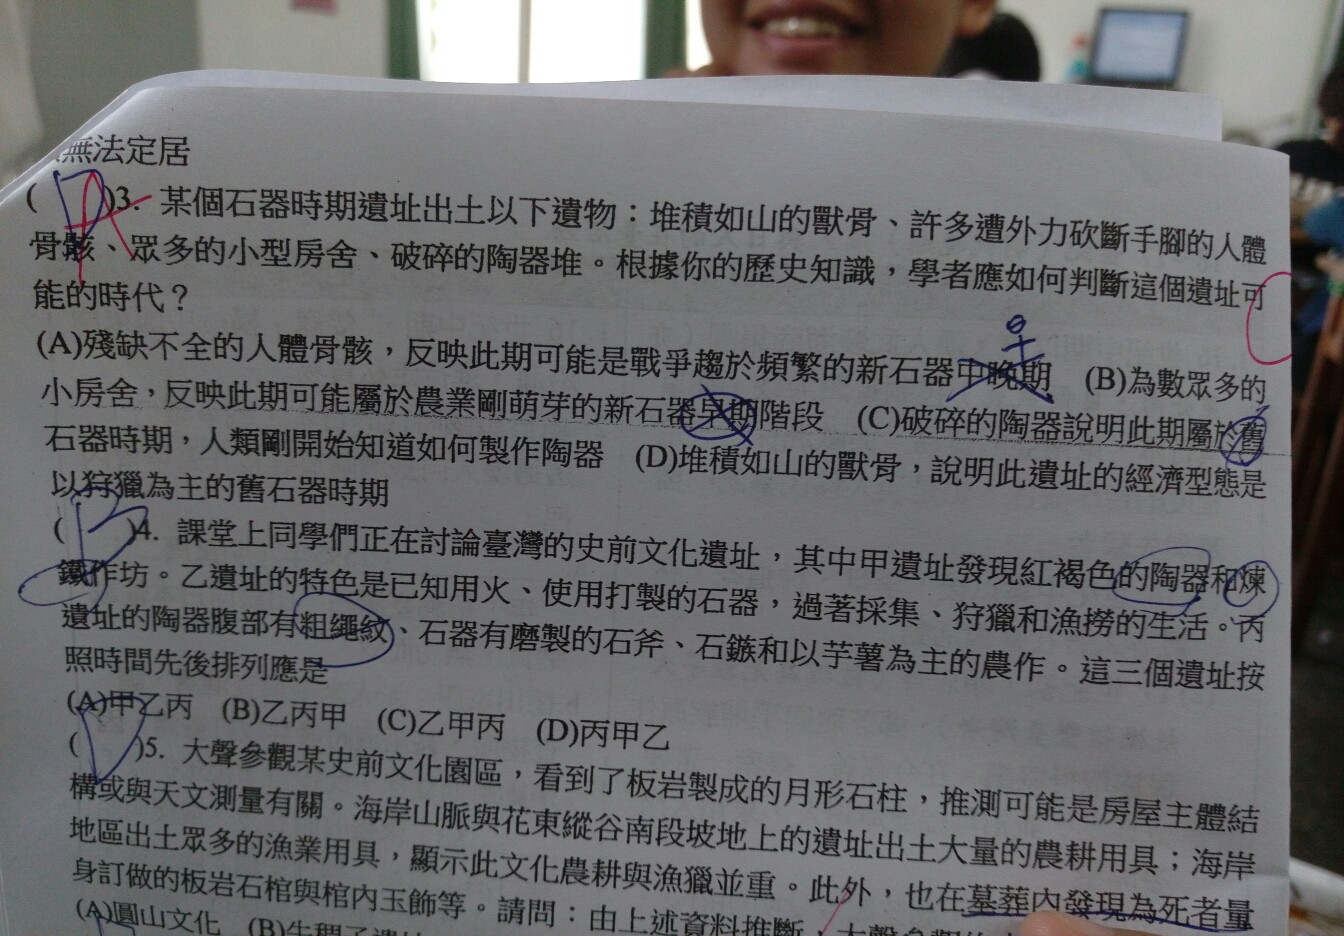 無法定居
( A )3. 某個石器時期遺址出土以下遺物：堆積如山的獸骨、許多遭外力砍斷手腳的人體
骨骸、眾多的小型房舍、破碎的陶器堆。根據你的歷史知識，學者應如何判斷這個遺址可
能的時代？
(A)殘缺不全的人體骨骸，反映此期可能是戰爭趨於頻繁的新石器中晚期 (B)為數眾多的
小房舍，反映此期可能屬於農業剛萌芽的新石器早期階段 (C)破碎的陶器說明此期屬於舊
石器時期，人類剛開始知道如何製作陶器 (D)堆積如山的獸骨，說明此遺址的經濟型態是
以狩獵為主的舊石器時期
( B )4. 課堂上同學們正在討論臺灣的史前文化遺址，其中甲遺址發現紅褐色的陶器和煉
鐵作坊。乙遺址的特色是已知用火、使用打製的石器，過著採集、狩獵和漁撈的生活。丙
遺址的陶器腹部有粗繩紋、石器有磨製的石斧、石鏃和以芋薯為主的農作。這三個遺址按
照時間先後排列應是
(A)甲乙丙 (B)乙丙甲 (C)乙甲丙 (D)丙甲乙
( D )5. 大聲參觀某史前文化園區，看到了板岩製成的月形石柱，推測可能是房屋主體結
構或與天文測量有關。海岸山脈與花東縱谷南段坡地上的遺址出土大量的農耕用具；海岸
地區出土眾多的漁業用具，顯示此文化農耕與漁獵並重。此外，也在墓葬內發現為死者量
身訂做的板岩石棺與棺內玉飾等。請問：由上述資料推斷，大聲參觀的
(A)圓山文化 (B)牛稠子遺